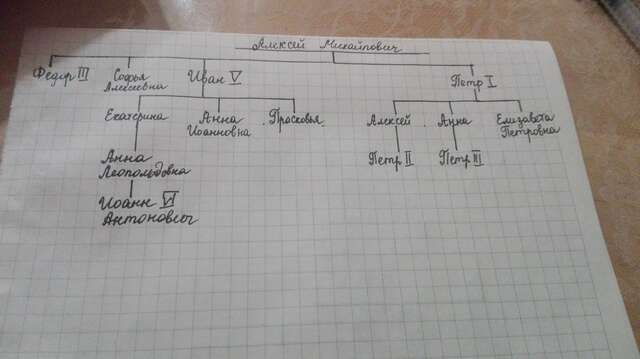 Алексей Михайлович
Федор III
Софья
Алексеевна
Иван V
Петр I
Екатерина
Анна
Иоанновна
Прасковья
Алексей
Анна
Елизавета
Петровна
Анна
Леопольдовна
Петр II
Петр III
Иоанн VI
Антонович